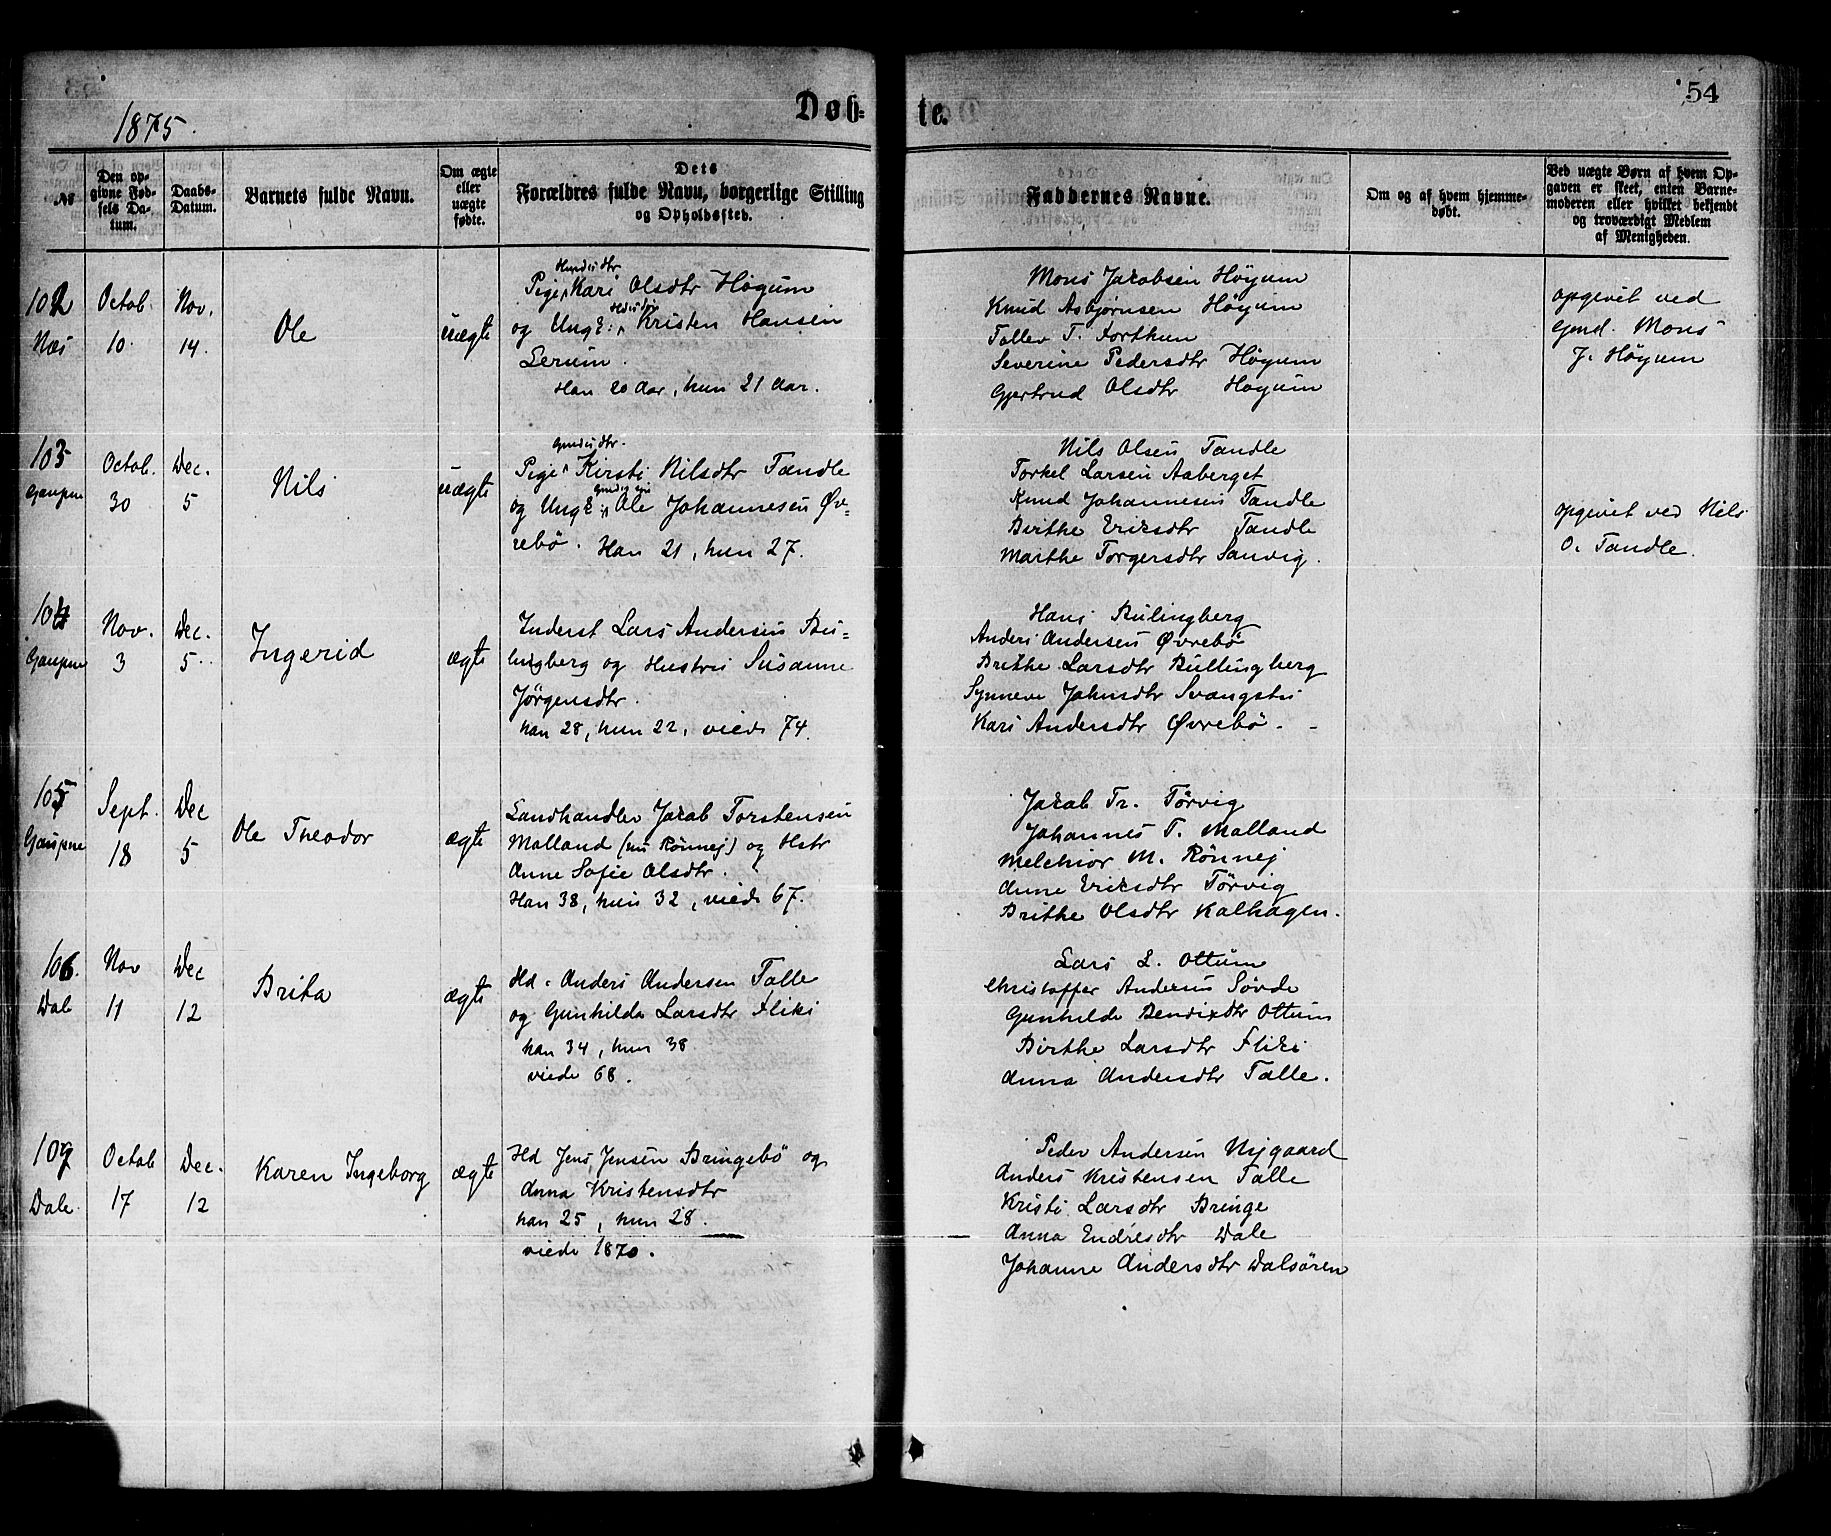 1875.
Døb-
te.
54
№
Den op-
givne Fød-
sels Da-
tum.
Daabs-
Datum.
Barnets fulde Navn.
Om ægte
eller
uægte
fødte.
Dets
Forældres fulde Navn, borgerlige Stilling
og Opholdssted.
Faddernes Navne.
Om og af hvem hjemme-
døbt.
Ved uægte Børn af hvem Op-
gaven er skeet, enten Barne-
moderen eller hvilket bekjendt
og troværdigt Medlem
af Menigheden.
102
Næs
Octob.
10.
Nov.
14.
Ole
uægte
Pige Kari Olsdtr Høgum
og Ungk: Kristen Hansen
Lerum.
Han 20 Aar, hun 21 Aar.
Mons Jakobsen Høyum
Knud Asbjørnsen Høyum
Tollev T. Forthun
Severine Pedersdtr Høyum
Gjertrud Olsdtr Høyum
opgivet ved
Gmd. Mons
J. Høyum
103
Gaupne
Octob.
30
Dec.
5
Nils
uægte
Gmdsdtr.
Pige Kirsti Nilsdtr Tandle
og Ungk: Ole Johannesen Øv-
rebø. Han 21, hun 27.
Nils Olsen Tandle
Torkel Larsen Aaberget
Knud Johannesen Tandle
Birthe Eriksdtr Tandle
Marthe Torgersdtr Sanvig.
opgivet ved Nils
O. Tandle.
104
Gaupne
Nov.
3
Dec.
5
Ingerid
ægte
Inderst Lars Andersen Bu-
lingberg og Hustru Susanne
Jørgensdtr.
han 28, hun 22, viede 74.
Hans Bulingberg
Anders Andersen Øvrebø
Brithe Larsdtr Bullingberg
Synneve Johnsdtr
Kari Andersdtr Øvrebø.
105
Gaupne
Sept.
18
Dec
5
Ole Theodor
ægte
Landhandler Jakob Torstensen
Molland (nu Rønnej) og Hstr
Anne Sofie Olsdtr.
Han 38, hun 32, viede 67.
Jakob Tr. Tørvig
Johannes T. Molland
Melchior M. Rønnej
Anne Eriksdtr Tørvig
Brithe Olsdtr Kalhagen.
106.
Dale
Nov
11
Dec
12
Brita
ægte
Hd. Anders Andersen Talle
og Gunhilda Larsdtr Fliki
han 34, hun 38
viede 68.
Lars L. Ottum
Christoffer Andersen Søvde
Gunhilde Bendixdtr Ottum
Birthe Larsdtr Fliki
Anna Andersdtr Talle.
107
Dale.
Octob
17
Dec.
12
Karen Ingeborg
ægte
Hd Jens Jensen Bringebø og
Anna Kristensdtr
han 25, hun 28.
viede 1870.
Peder Andersen Nygaard
Anders Kristensen Talle
Kristi Larsdtr Bringe
Anna Endresdtr Dale
Johanne Andersdtr Dalsøren